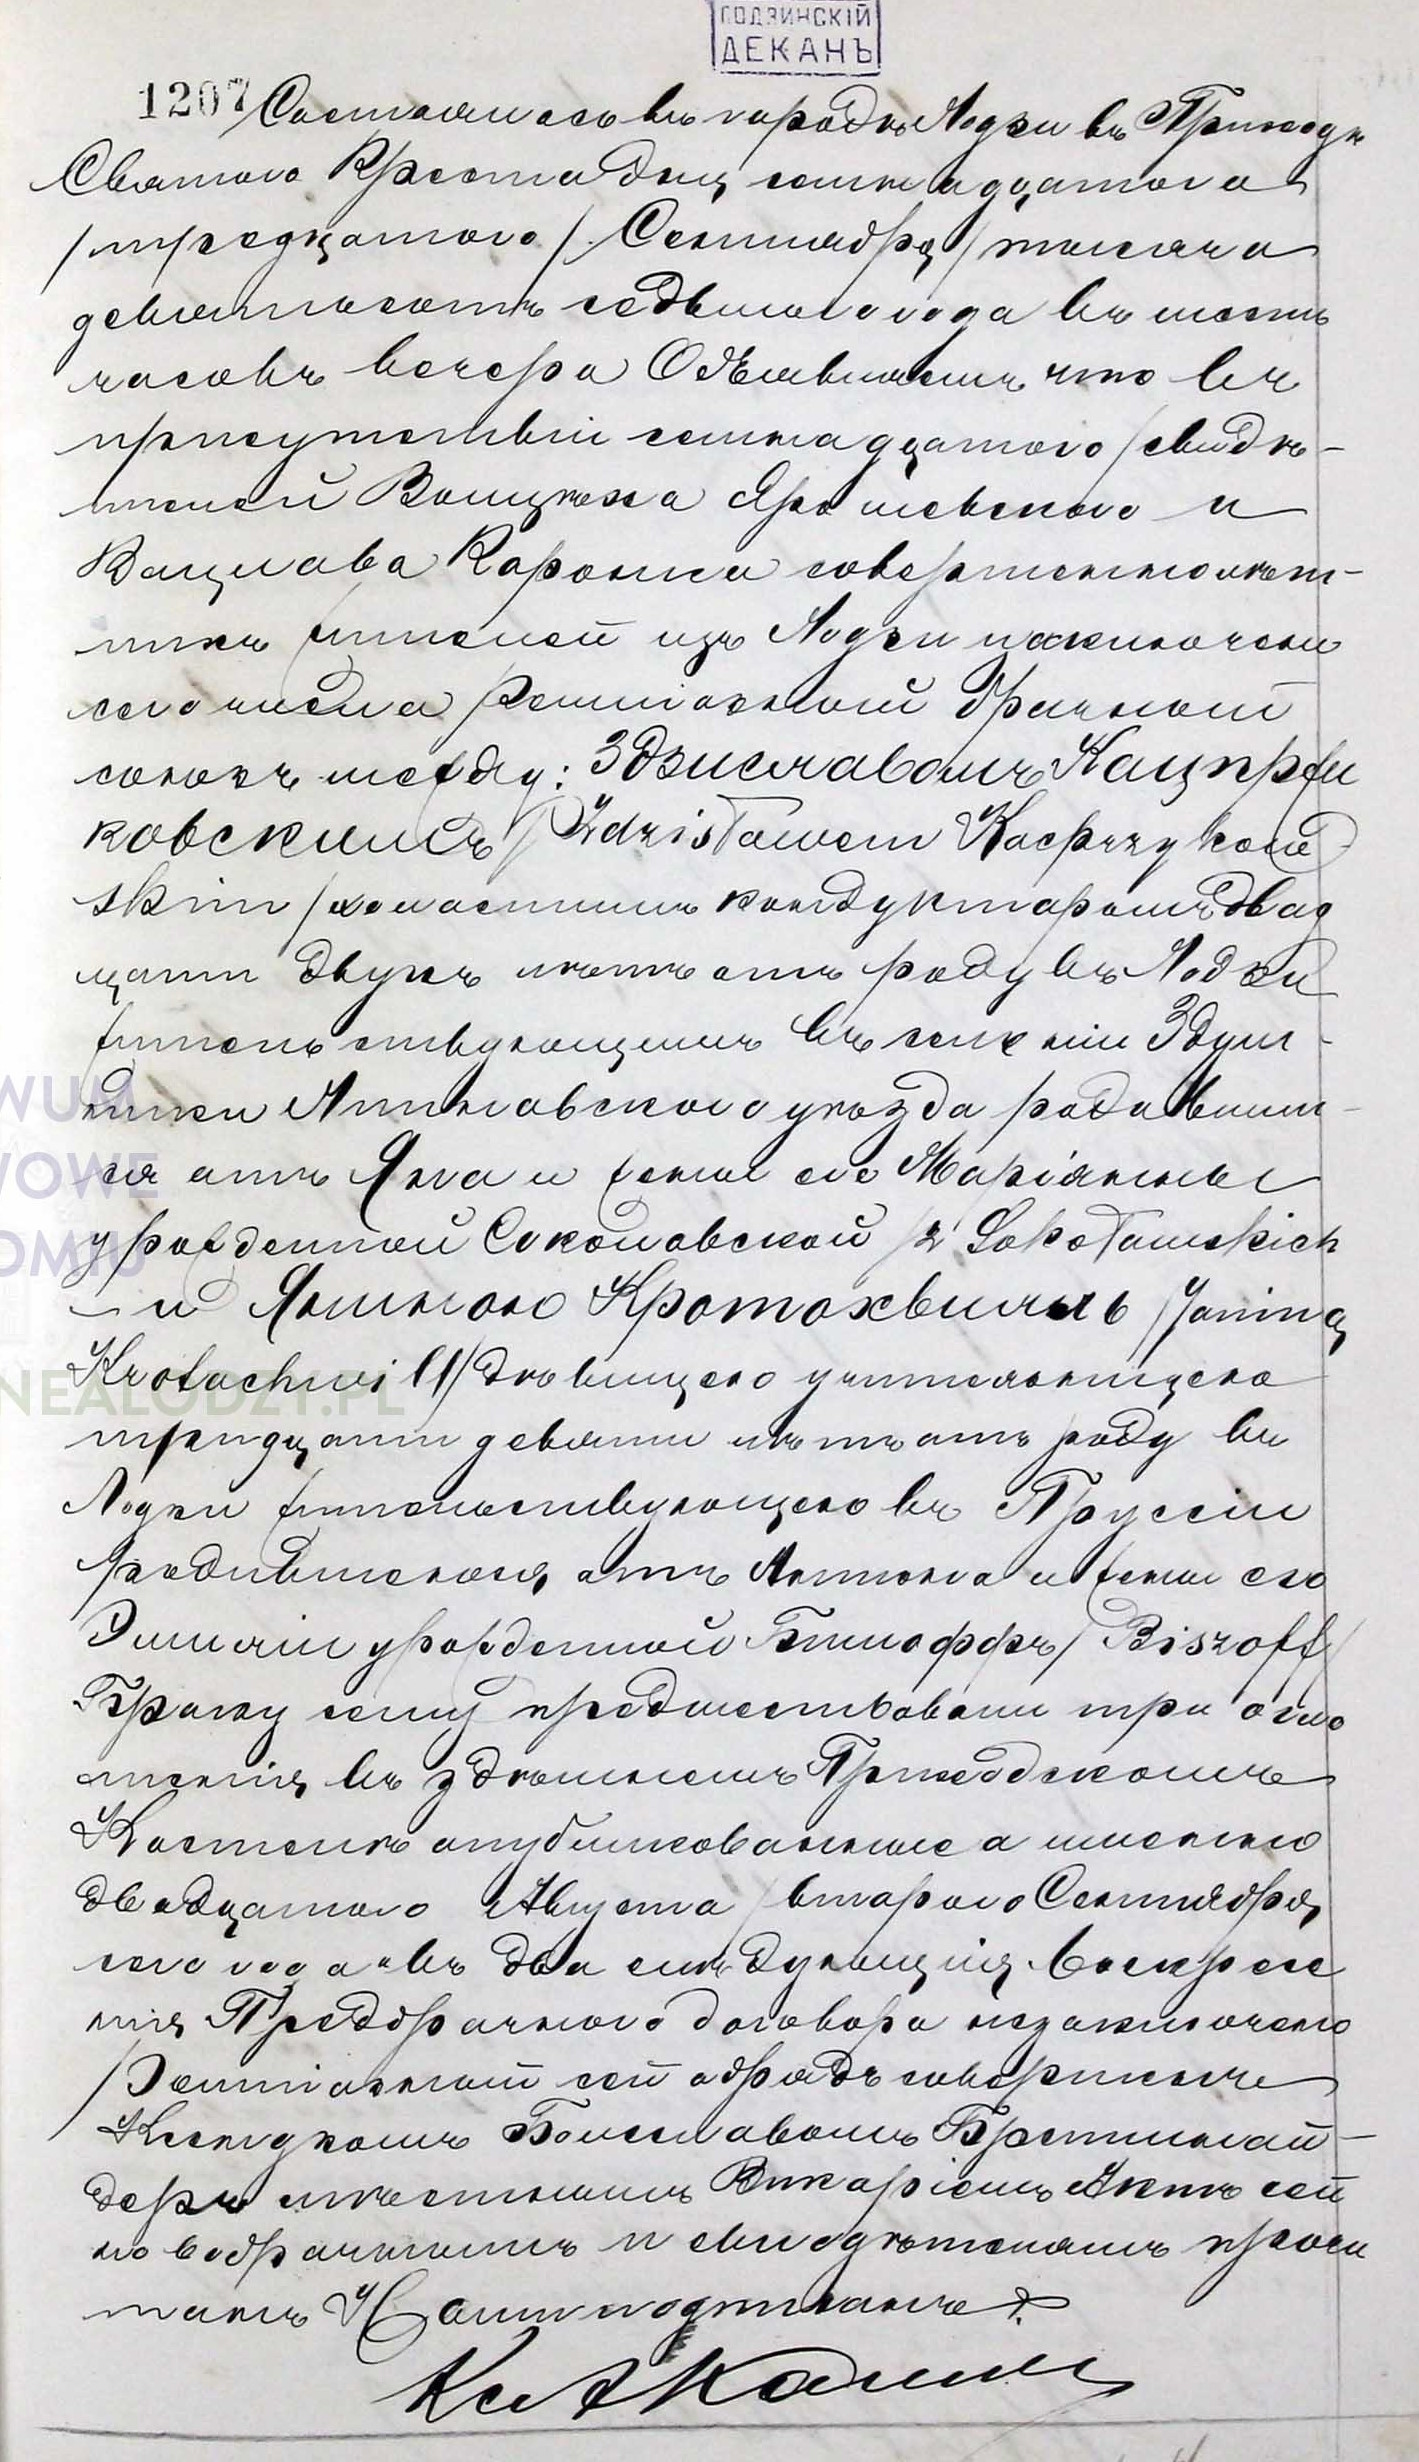 ЛОДЗИНСКІЙ
ДЕКАНЪ
1207 Состоялось въ городѣ Лодзи въ Приходѣ
Святого Креста дня семнадцатого
/тредцатого/ Сентября /тысяча
девятьсотъ седьмого года въ шесть
часовъ вечера Объявляемъ что въ
присутствіи семнадцатого /свидѣ-
телей Войцѣха Ярошевского и
Вацлава Каролка совершеннолѣт-
нихъ жителей изъ Лодзи заключенъ
сего числа религіозный брачный
союзъ между: Здзиславомъ Кацпржи
ковскимъ /Zdzisławem Kacprzykow
skim/ холостымъ кондукторомъ двад
цати двухъ лѣтъ отъ роду въ Лодзи
жительствующимъ въ селеніи
Ленчицкого уѣзда родившим-
ся отъ Яна и жены его Маріянны
урожденной Соколовской /z Sokołowskich
— и Яниною Кротохвиль /Janiną
Krotochwill/ дѣвицею учительницею
тридцати девяти лѣтъ отъ роду въ
Лодзи жительствующею въ Пруссіи
родившеюся отъ Антона и жены его
Эмиліи урожденной Бишоффъ /Biszoff/
Браку сему предшествовали три огла
шенія въ здѣшнемъ Приходскомъ
Костелѣ опубликованные а именно
двадцатого Августа /второго Сентября
сего года и въ два слѣдующія воскресе
нія Предбрачного договора незаключено
Религіозный сей обрядъ совершенъ
Ксендзомъ Болеславомъ
мѣстнымъ Викаріемъ Актъ сей
новобрачнымъ и свидѣтелямъ прочи
танъ Нами подписанъ.
Кс